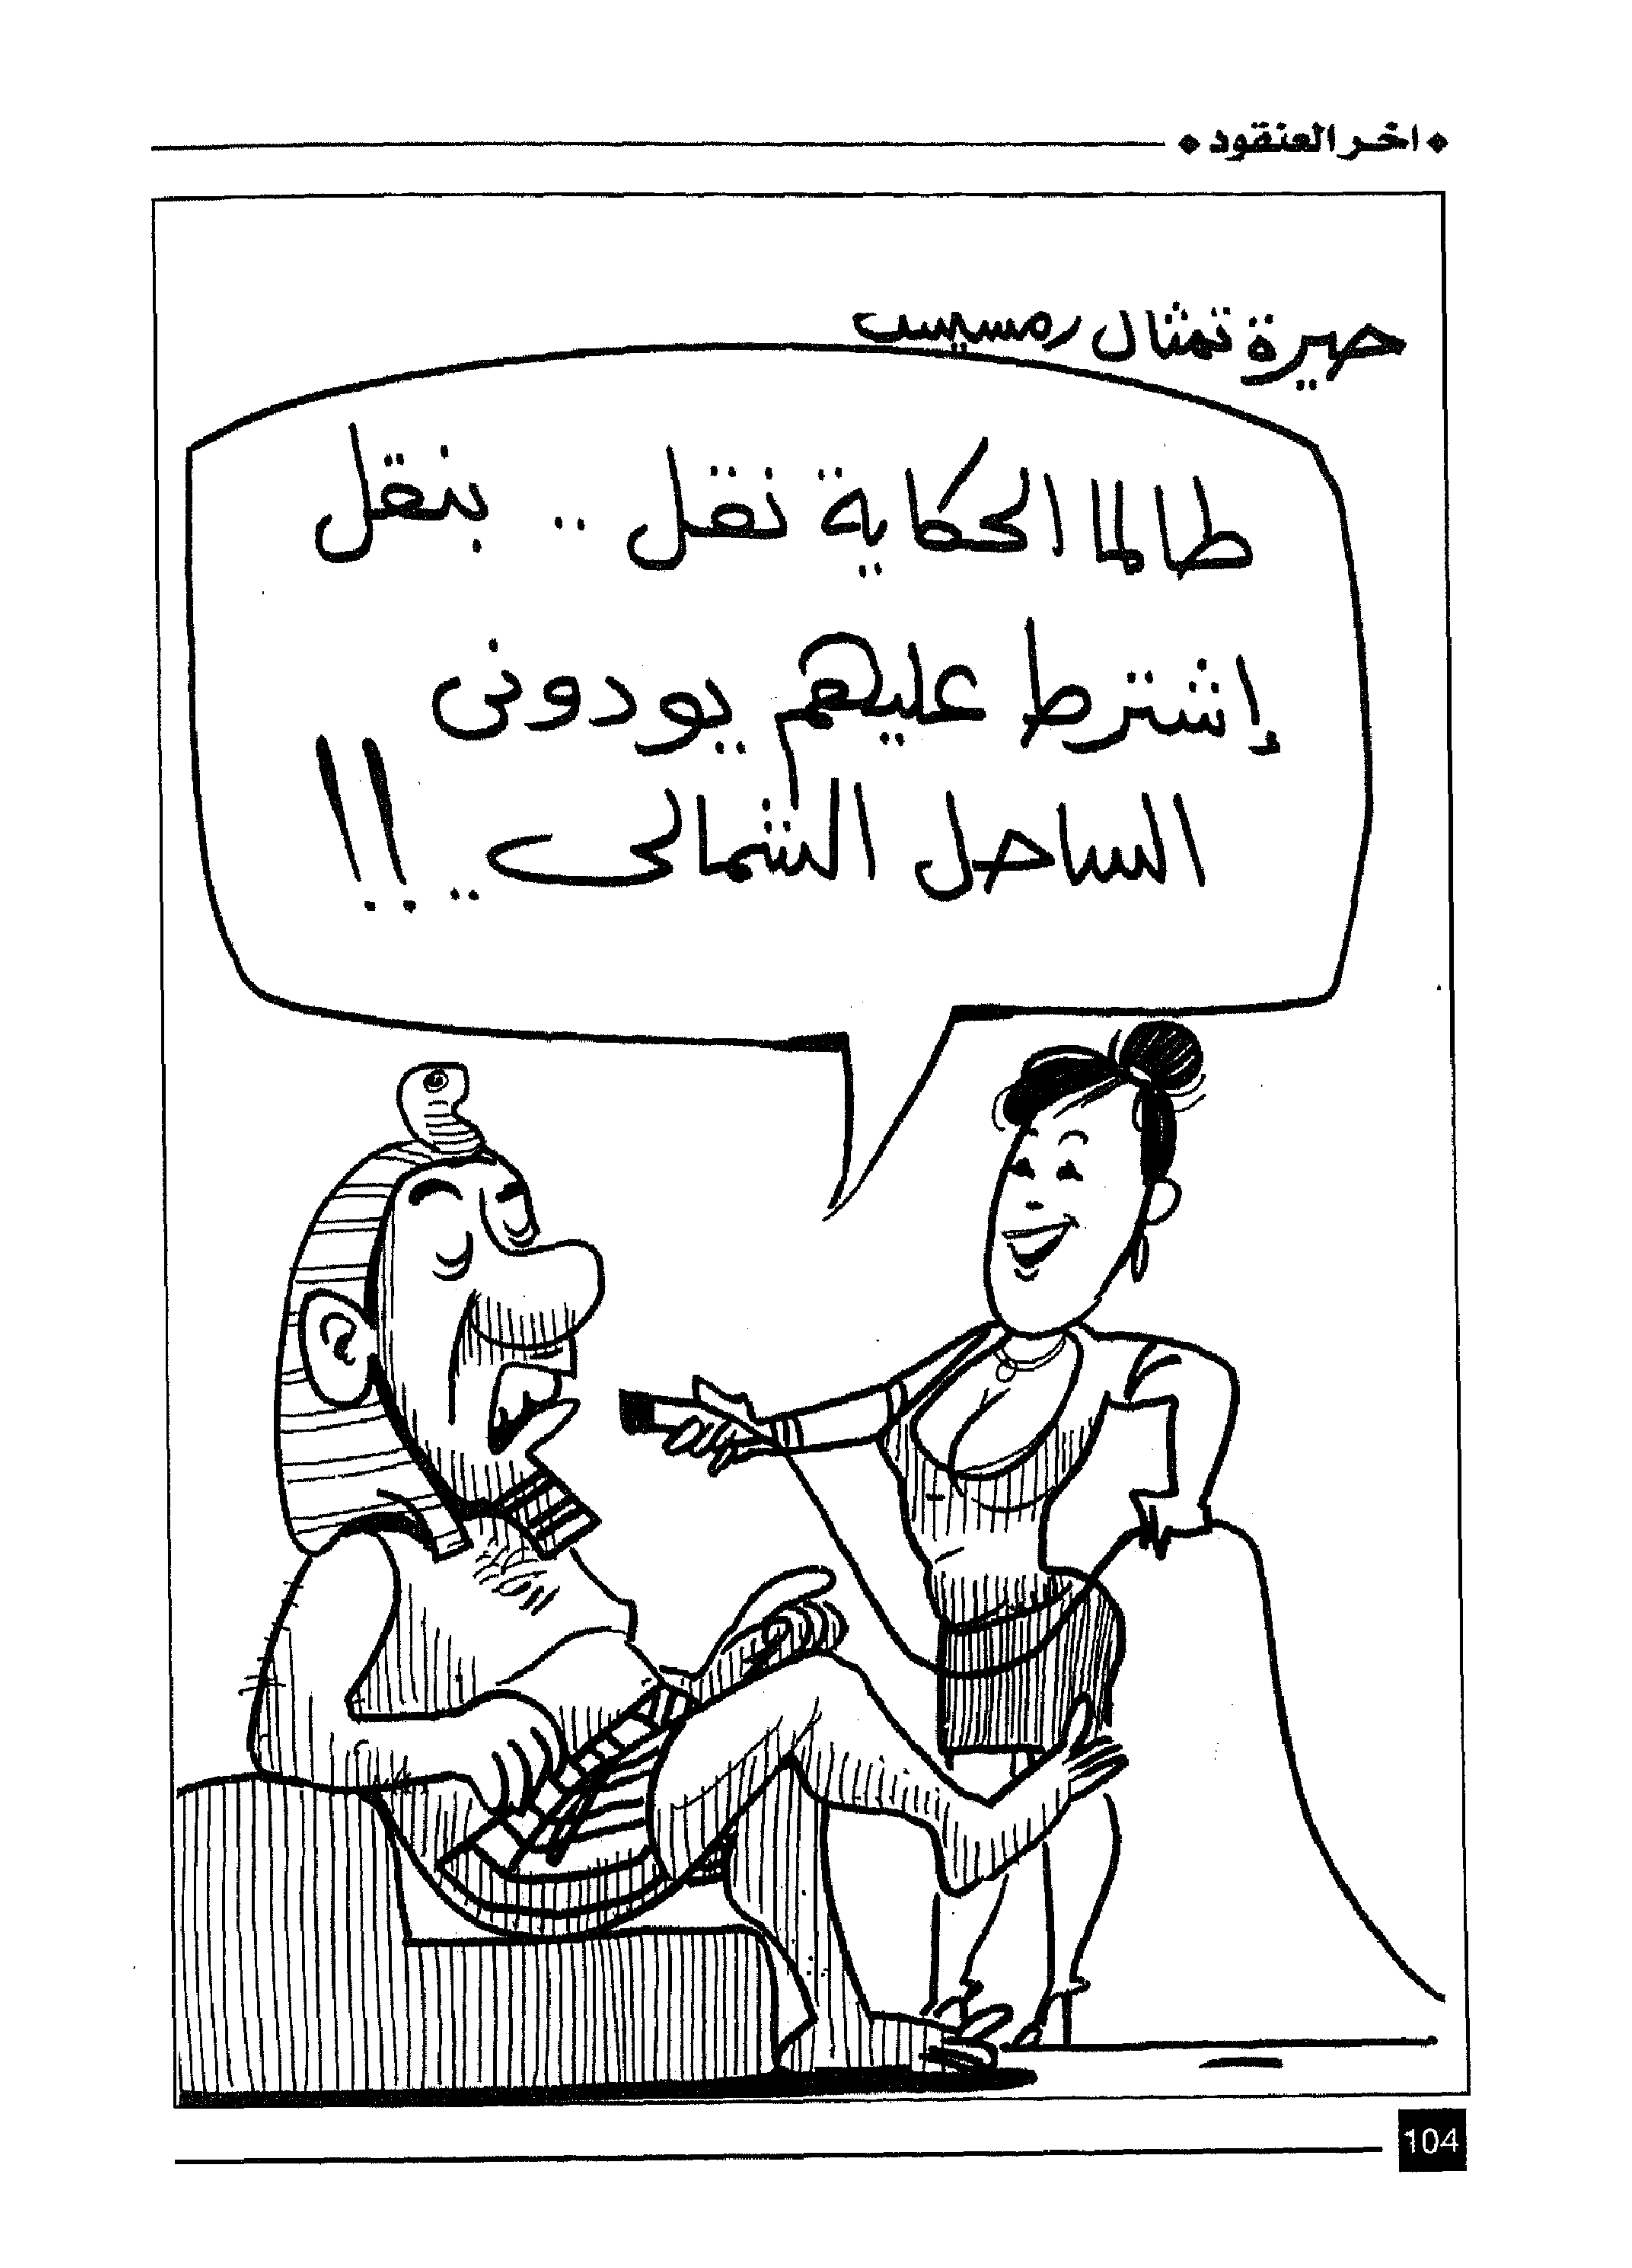 اخر العنقود
حيرة تمثال رمسيس
طالما الحكاية نقل .. بنقل
إشترط عليهم يودونى
الساحل الشمالى .. !!
104